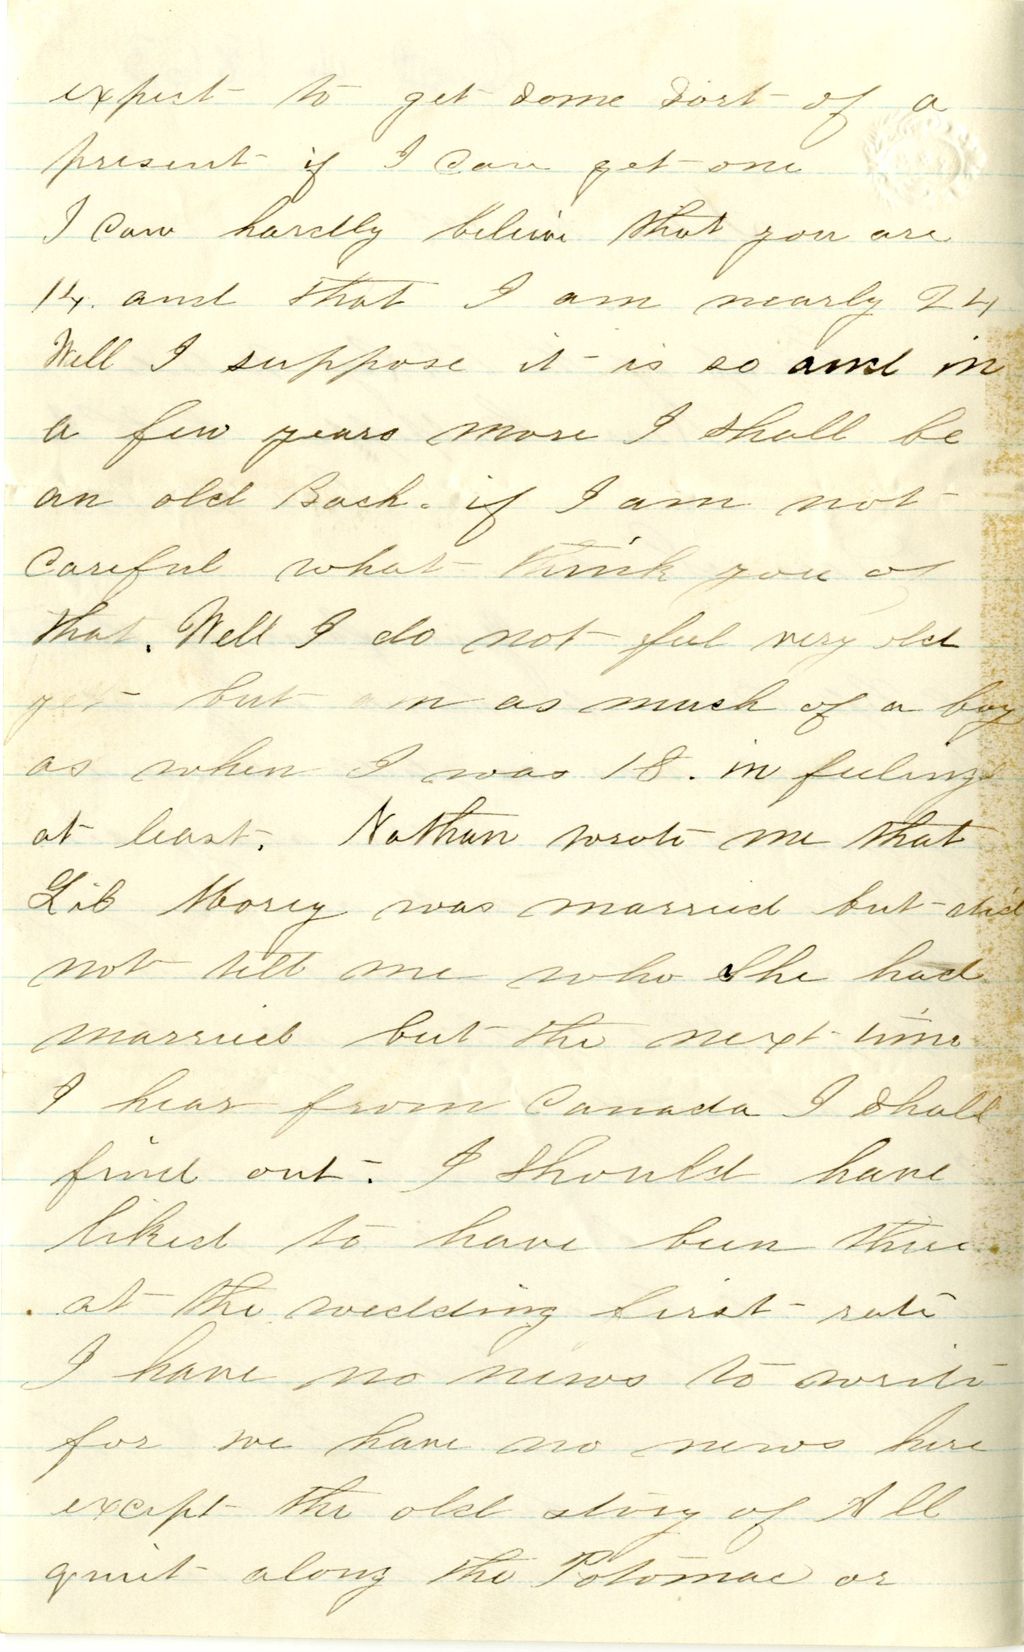 expect to get some sort of a
present if I can get one
I can hardly believe that you are
14. and that I am nearly 24
Well I suppose it is so and in
a few years more I shall be
an old Bach. if I am not
careful what think you of
that. Well I do not feel very old
yet but am as much of a boy
as when I was 18. in feelings
at least. Nathan wrote me that
Lib Morey was married but did
not tell me who She had
married but the next time
I hear from Canada I shall
find out. I should have
liked to have been there
at the wedding first rate
I have no news to write
for we have no news here
except the old story of All
quiet along the Potomac or